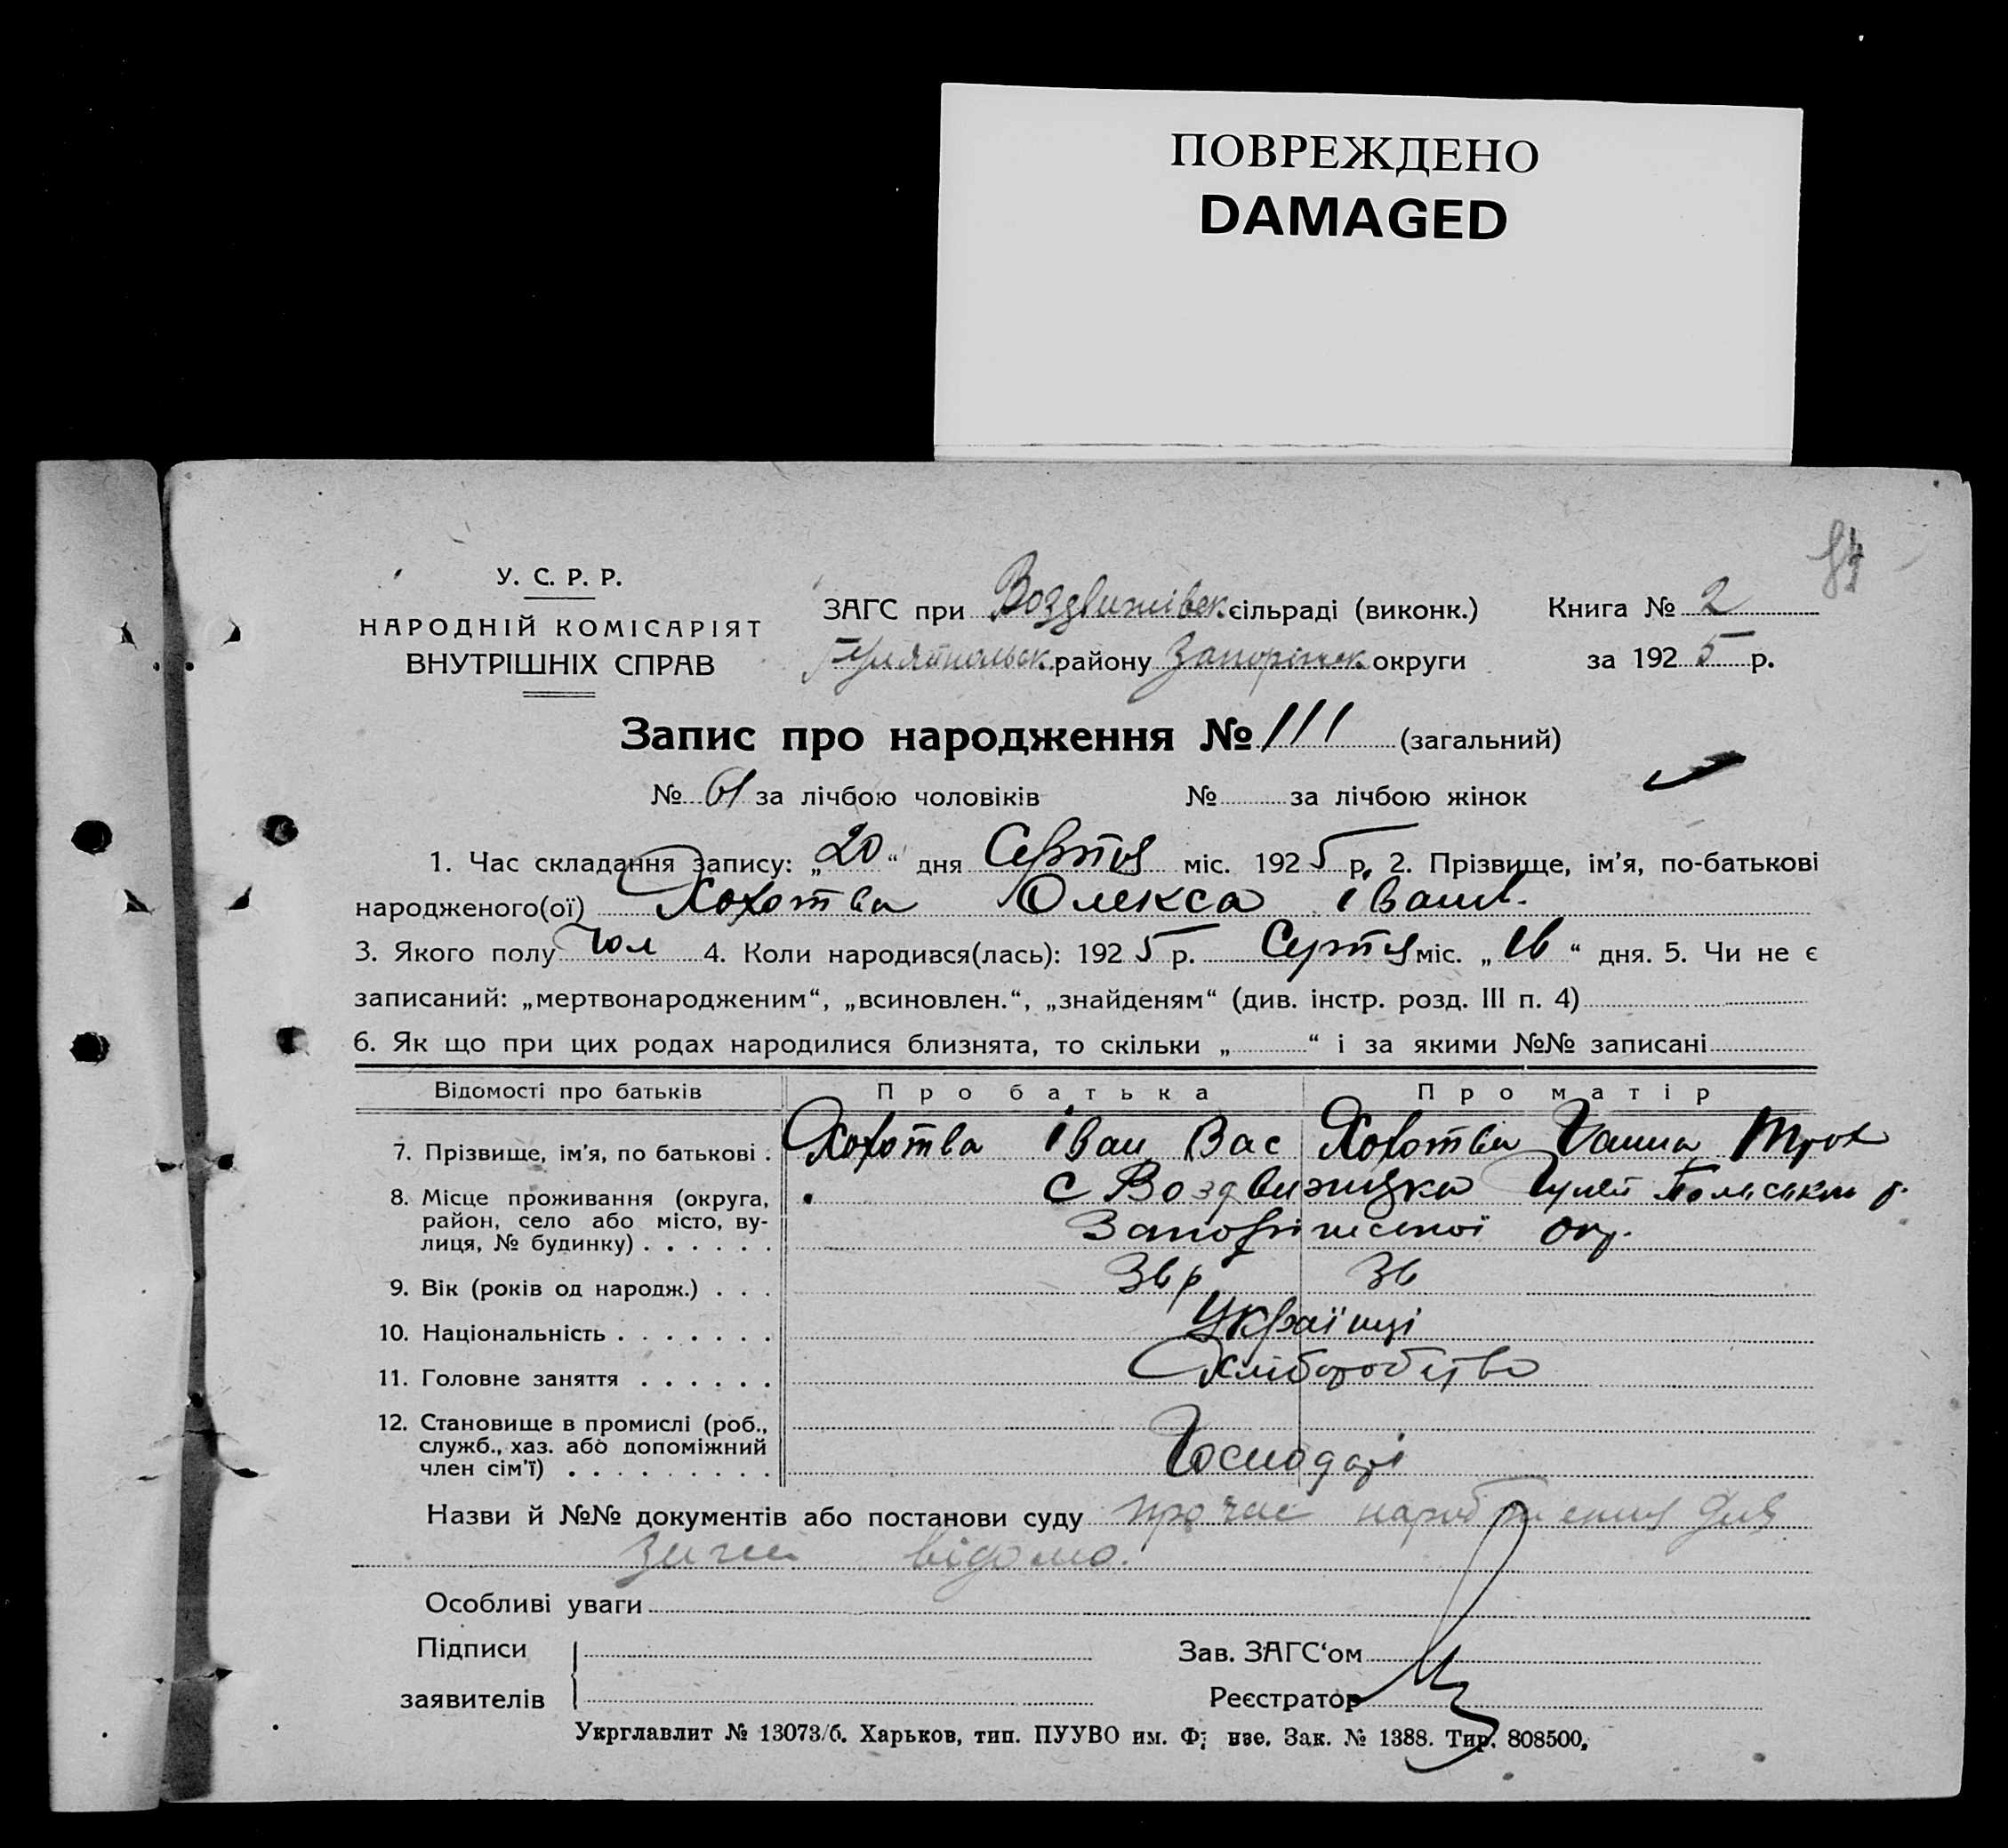 ПОВРЕЖДЕНО
DAMAGED
84
У. С. Р. Р.
НАРОДНІЙ КОМІСАРІЯТ
ВНУТРІШНІХ СПРАВ
ЗАГС при Воздвижівськ. сільраді (виконк.) Книга № 2
Гуляйпольськ. району Запоріжск. округи за 1925 р.
Запис про народження № 111 (загальний)
№ 61 за лічбою чоловіків № за лічбою жінок
1. Час складання запису: „20“ дня Серпня міс. 1925 р. 2. Прізвище, ім’я, по-батькові
народженого(ої) Хохотва Олекса Іванов.
3. Якого полу Чол 4. Коли народився(лась): 1925 р. Серпня міс. „16“ дня. 5. Чи не є
записаний: „мертвонародженим“, „всиновлен.“, „знайденям“ (див. інстр. розд. III п. 4)
6. Як що при цих родах народилися близнята, то скільки „ “ і за якими №№ записані
Відомості про батьків Про батька Про матір
7. Прізвище, ім’я, по батькові . Хохотва Іван Вас Хохотва Ганна Трох
8. Місце проживання (округа, с Воздвижецка Гуляй Польськ р.
район, село або місто, ву-
лиця, № будинку) . . . . . . Запоріжської окр.
9. Вік (років од народж.) . . . 36 р 36
10. Національність . . . . . . . Українці
11. Головне заняття . . . . . . Хліборобство
12. Становище в промислі (роб.,
служб., хаз. або допоміжний
член сім’ї) . . . . . . . . . Господарі
Назви й №№ документів або постанови суду про час народження для
відомо.
Особливі уваги
Підписи Зав. ЗАГС‘ом
заявителів Реєстратор
Укрглавлит № 13073/б. Харьков, тип. ПУУВО им. Ф нзе. Зак. № 1388. Тир. 808500,